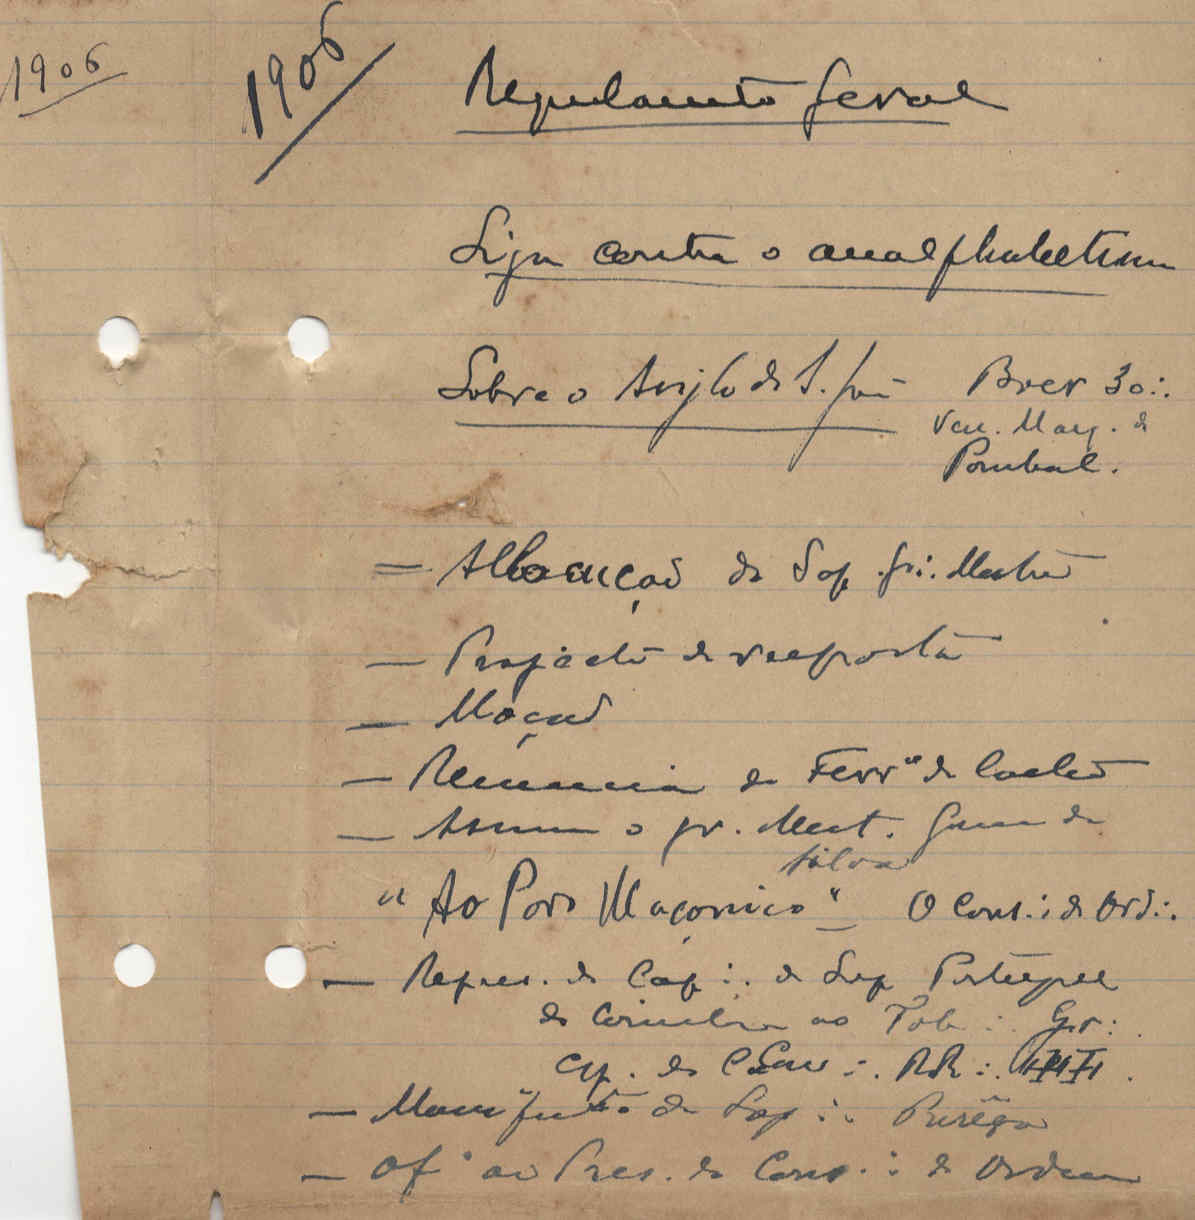 1906
1906
Regulamento geral
Liga contra o analphabetismo
Sobre o Asylo de S. João Boer 30∴
Ven. Marq. de
Pombal.
= Allocução do Sap. Gr∴ Mestre
— Projecto de resposta
— Moção
— Renuncia de Ferrª de Castro
— Assume o gr. Mest. Gama da
Silva
"Ao Povo Maçonico" O Cons∴ da Ord∴
— Repres. do Cap∴ da Loj Portugal
de Coimbra ao Gr∴
Cap. de Cav∴ RR∴ ††
— Manifesto da Loj∴ Pureza
— Of. ao Pres. do Cons∴ da Ordem